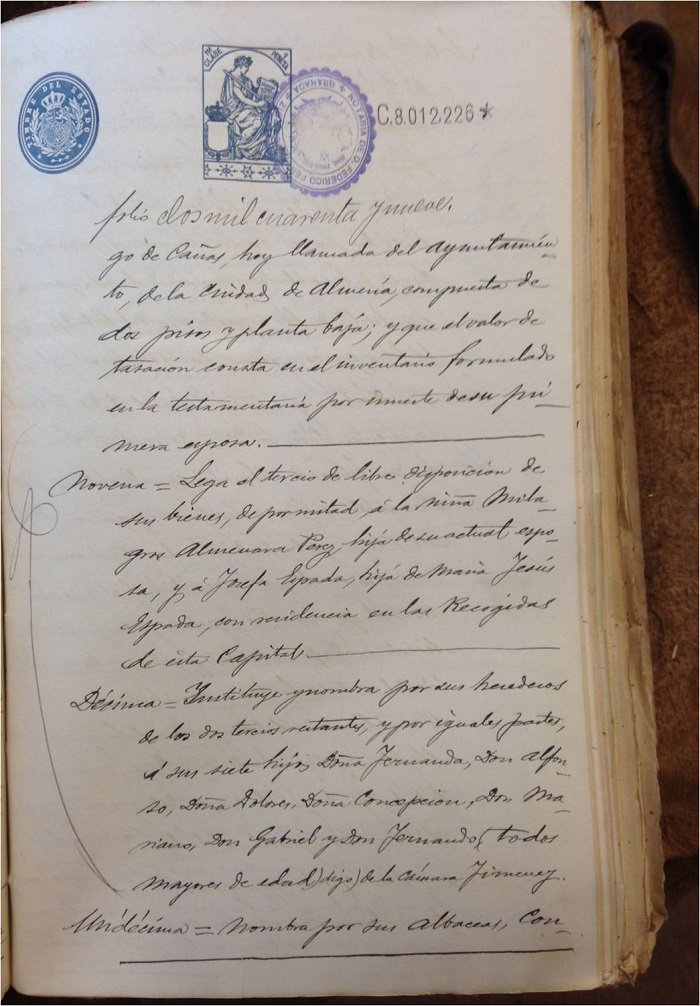 TIMBRE DEL ESTADO
CLASE
PESETA
NOTARIA DE D. FEDERICO
GRANADA
C.8.012,226*
folio dos mil cuarenta y nueve.
go de Cañas, hoy llamada del Ayuntamien-
to, de la Ciudad de Almería, compuesta de
dos pisos y planta baja; y que el valor de
tasación consta en el inventario formulado
en la testamentaría por muerte de su pri-
mera esposa.
Novena = Lega el tercio de libre disposición de
sus bienes, de por mitad, á la niña Mila-
gros Almenara Perez, hija de su actual espo-
sa, y á Josefa Espada, hija de María Jesús
Espada, con residencia en las Recogidas
de esta Capital
Décima = Instituye y nombra por sus herederos
de los dos tercios restantes, y por iguales partes,
á sus siete hijos, Doña Fernanda, Don Alfon-
so, Doña Dolores, Doña Concepcion, Don Ma-
riano, Don Gabriel y Don Fernando (todos
mayores de edad) digo) de la Cámara Jimenez.
Undécima = Nombra por sus Albaceas, Con-